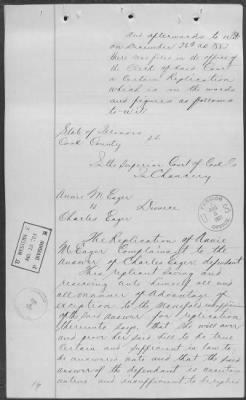 And afterwards to wit
on December 26th AD 188
there was filed in the office of
the Clerk of said Court
a Certain Replication
which is in the words
and figures as follows
to-wit
State of Illinois
Cook County ss.
In the Superior Court of Cook Co
In Chancery
Annie M. Eager
vs Divorce
Charles Eager
The Replication of Annie
M. Eager Complainant to the
answer of Charles Eager defendant
This repliant saving and
reserving unto himself all and
all manner of advantage of
exception to the manifold
of the said answer for replication
thereunto says that she will aver
and prove her said bill to be true
certain and sufficient in law to
be answered unto and that the said
answer of the defendant is uncertain
untrue and insufficient to be replied
19